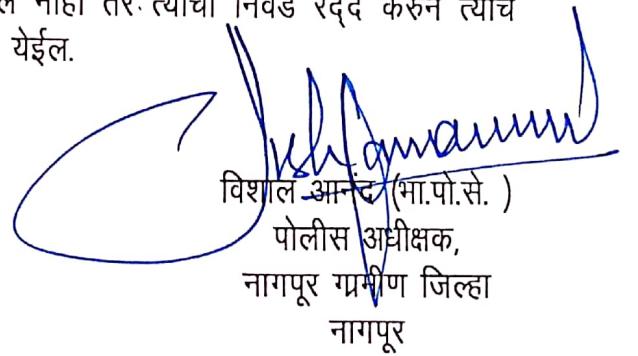 नाही तर त्यांची निवड रद्द करुन त्यांचे
येईल.
विशाल आनंद (भा.पो.से. )
पोलीस अधीक्षक,
नागपूर ग्रामीण जिल्हा
नागपूर